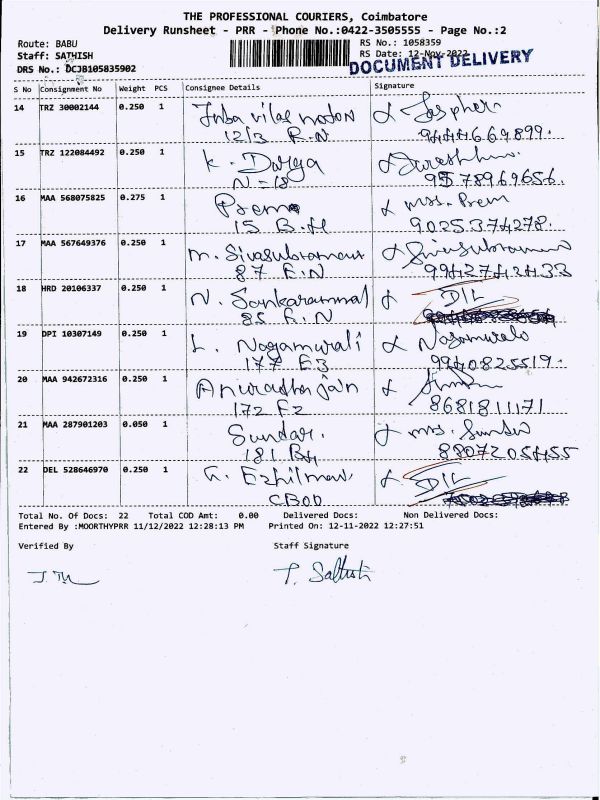 THE PROFESSIONAL COURIERS, Coimbatore
Delivery Runsheet - PRR - Phone No.:0422-3505555 - Page No.:2
Route: BABU
Staff: SATHISH
DRS No.: DCJB105835902
RS No.: 1058359
RS Date: 12-Nov-2022
DOCUMENT DELIVERY
S No Consignment No Weight PCS Consignee Details Signature
14 TRZ 30002144 0.250 1 Inba vilas
12/3 R.N 9444669899.
15 TRZ 122084492 0.250 1 K. Durga
N-18 9578969656.
16 MAA 568075825 0.275 1 Prema mrs. Prem
15 B.H 9025374278.
17 MAA 567649376 0.250 1 M. Sivasubramani Sivasubramani
87 E.N 9942742433
18 HRD 20106337 0.250 1 N. Sankarammal D/L
85 E.N
19 DPI 10307149 0.250 1 L. Nagamurali Nagamurale
177 E3 9940825519.
20 MAA 942672316 0.250 1 Anuradha jain
172 F2 8681811171
21 MAA 287901203 0.050 1 Sundar. mrs. Sundar
181 B4 8807205455
22 DEL 528646970 0.250 1 Ezhil D/L
CBOD
Total No. Of Docs: 22 Total COD Amt: 0.00 Delivered Docs: Non Delivered Docs:
Entered By :MOORTHYPRR 11/12/2022 12:28:13 PM Printed On: 12-11-2022 12:27:51
Verified By Staff Signature
T. Sathish